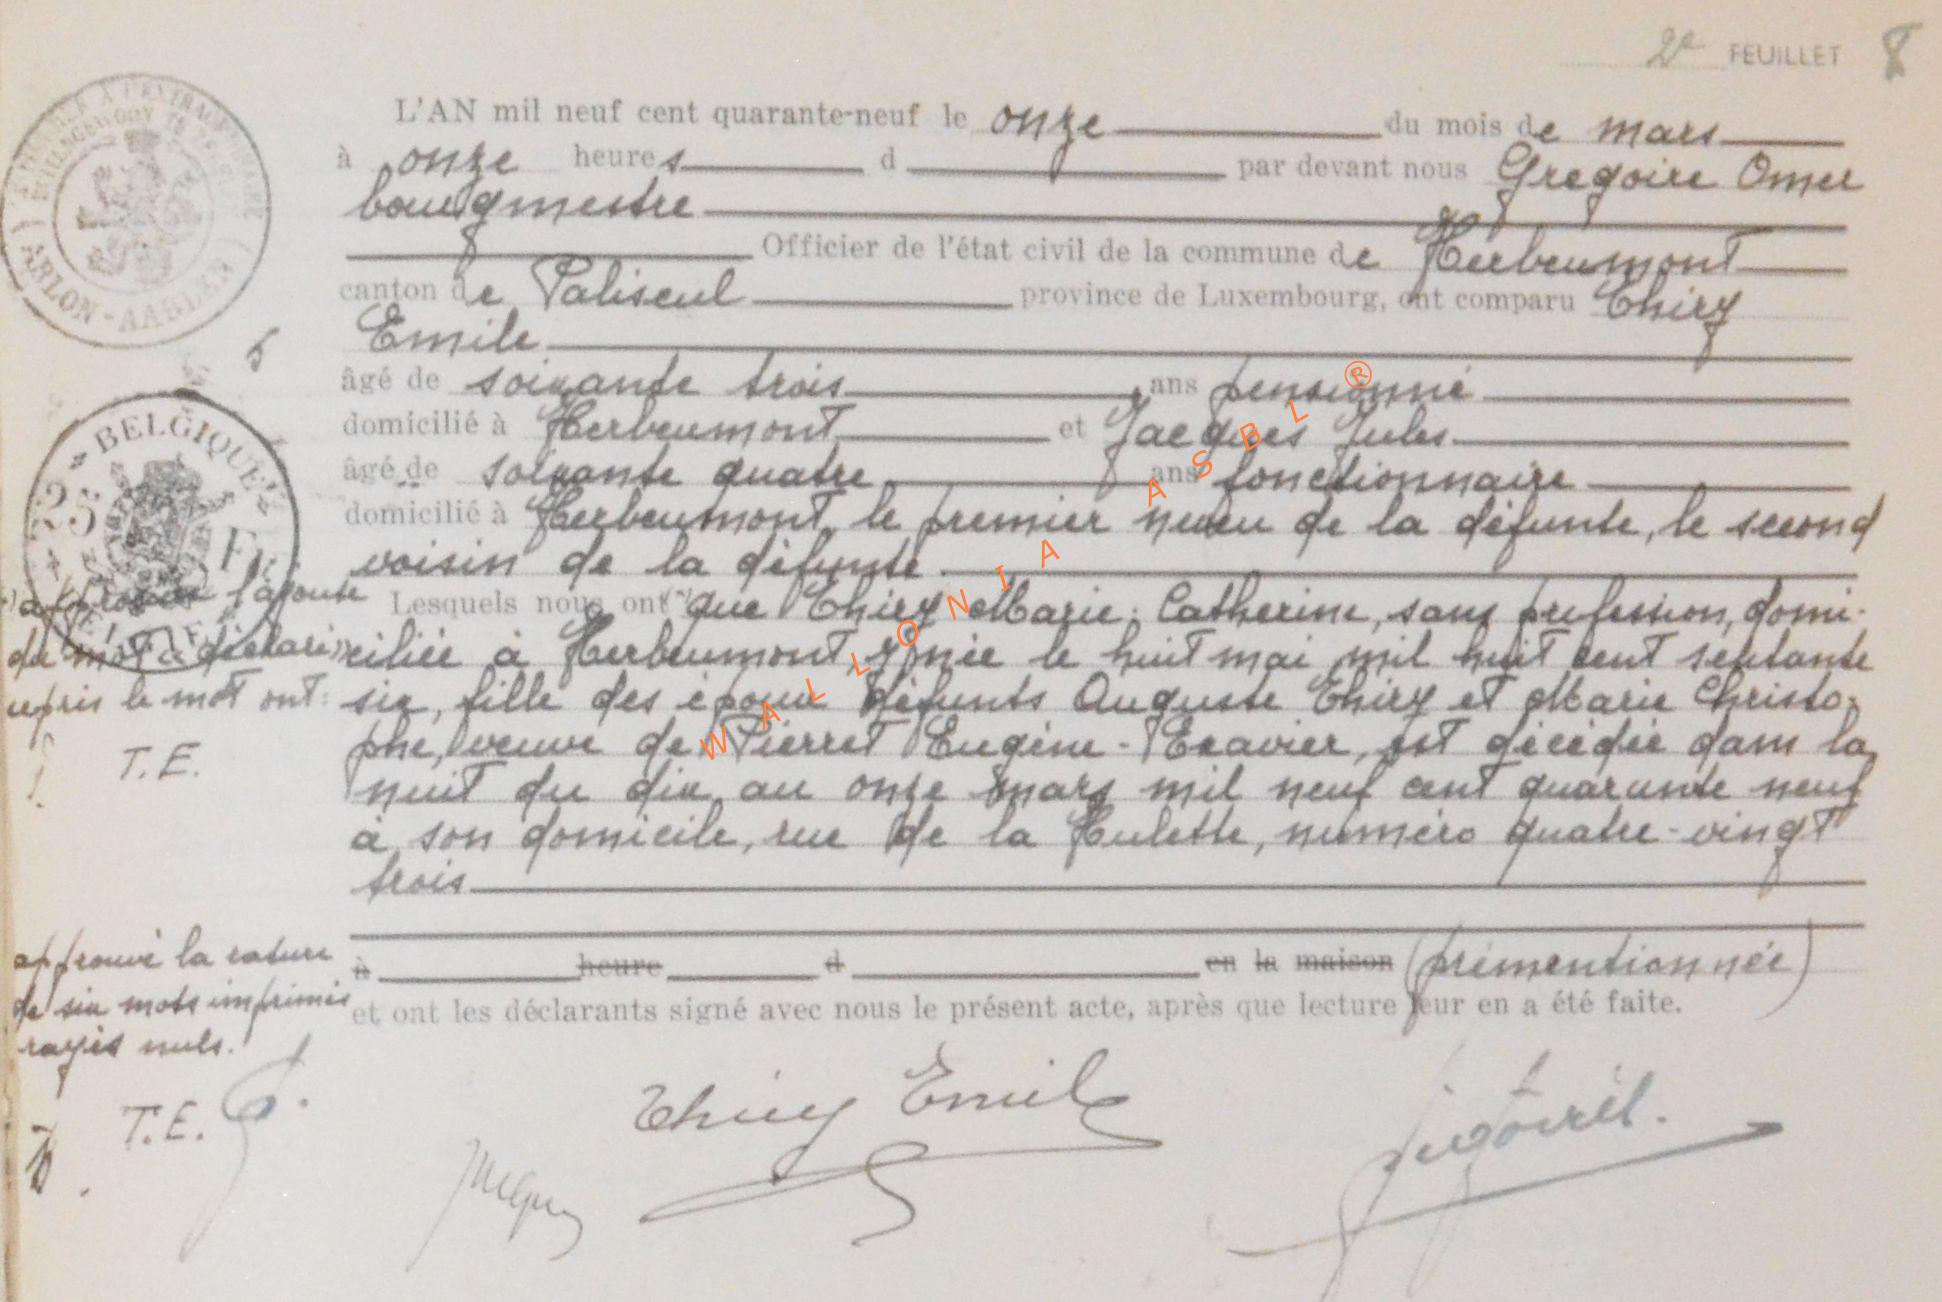 2e FEUILLET 8
L'AN mil neuf cent quarante-neuf le onze du mois de mars
à onze heures d par devant nous Gregoire Omer
bourgmestre
Officier de l'état civil de la commune de Herbeumont
canton de Paliseul province de Luxembourg, ont comparu Thiry
Emile
5
âgé de soixante trois ans pensionné
domicilié à Herbeumont et Jacques Jules
âgé de soixante quatre ans fonctionnaire
domicilié à Herbeumont, le premier neveu de la défunte, le second
voisin de la défunte
Lesquels nous ont que Thiry Marie-Catherine, sans profession, domi-
ciliée à Herbeumont, y née le huit mai mil huit cent septante
six, fille des époux défunts Auguste Thiry et Marie Christo-
phe, veuve de Pierret Eugène-Exavier, est décédée dans la
nuit du dix au onze mars mil neuf cent quarante neuf
à son domicile, rue de la Hulette, numéro quatre-vingt
trois
à heure d en la maison (prémentionnée)
et ont les déclarants signé avec nous le présent acte, après que lecture leur en a été faite.
Thiry Emile
Jacques
ARLON-AARLEN
BELGIQUE
25 Fr
approuvé l'ajoute
du mot "a déclaré"
après le mot ont:
T.E.
approuvé la rature
de six mots imprimés
rayés nuls.
T.E. G.
WALLONIA ASBL ®